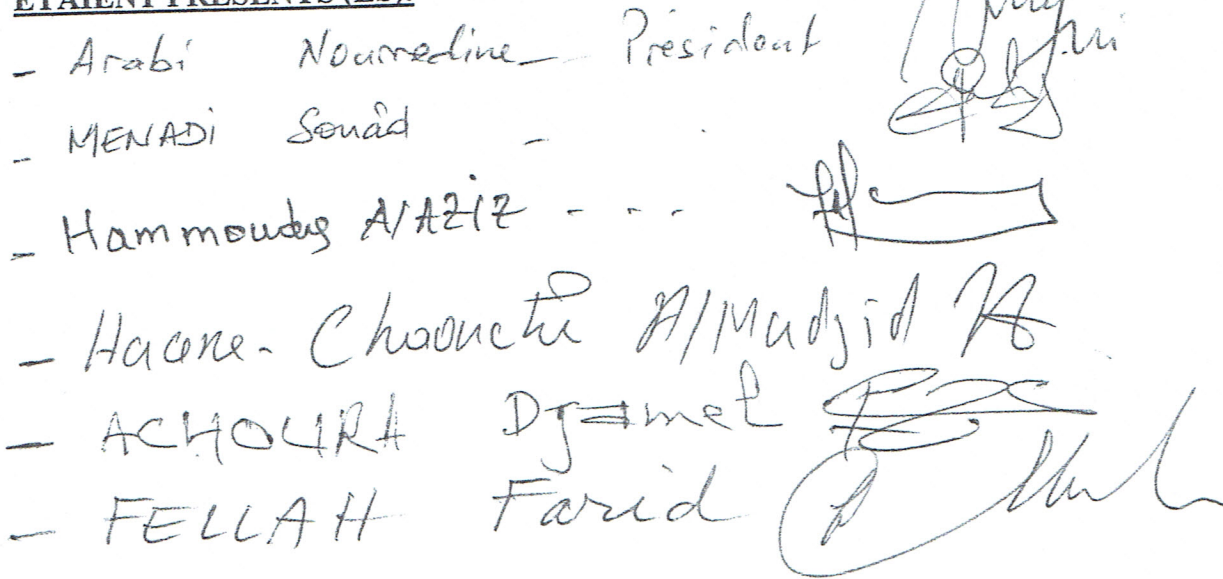 ETAIENT PRESENTS (ES):
- Arabi Nourredine - Président
- MENADi Souâd -
- Hammoudi A/AZiZ - - -
- Hacene - Chaouchi A/Madjid
- ACHOURA Djamel
- FELLAH Farid